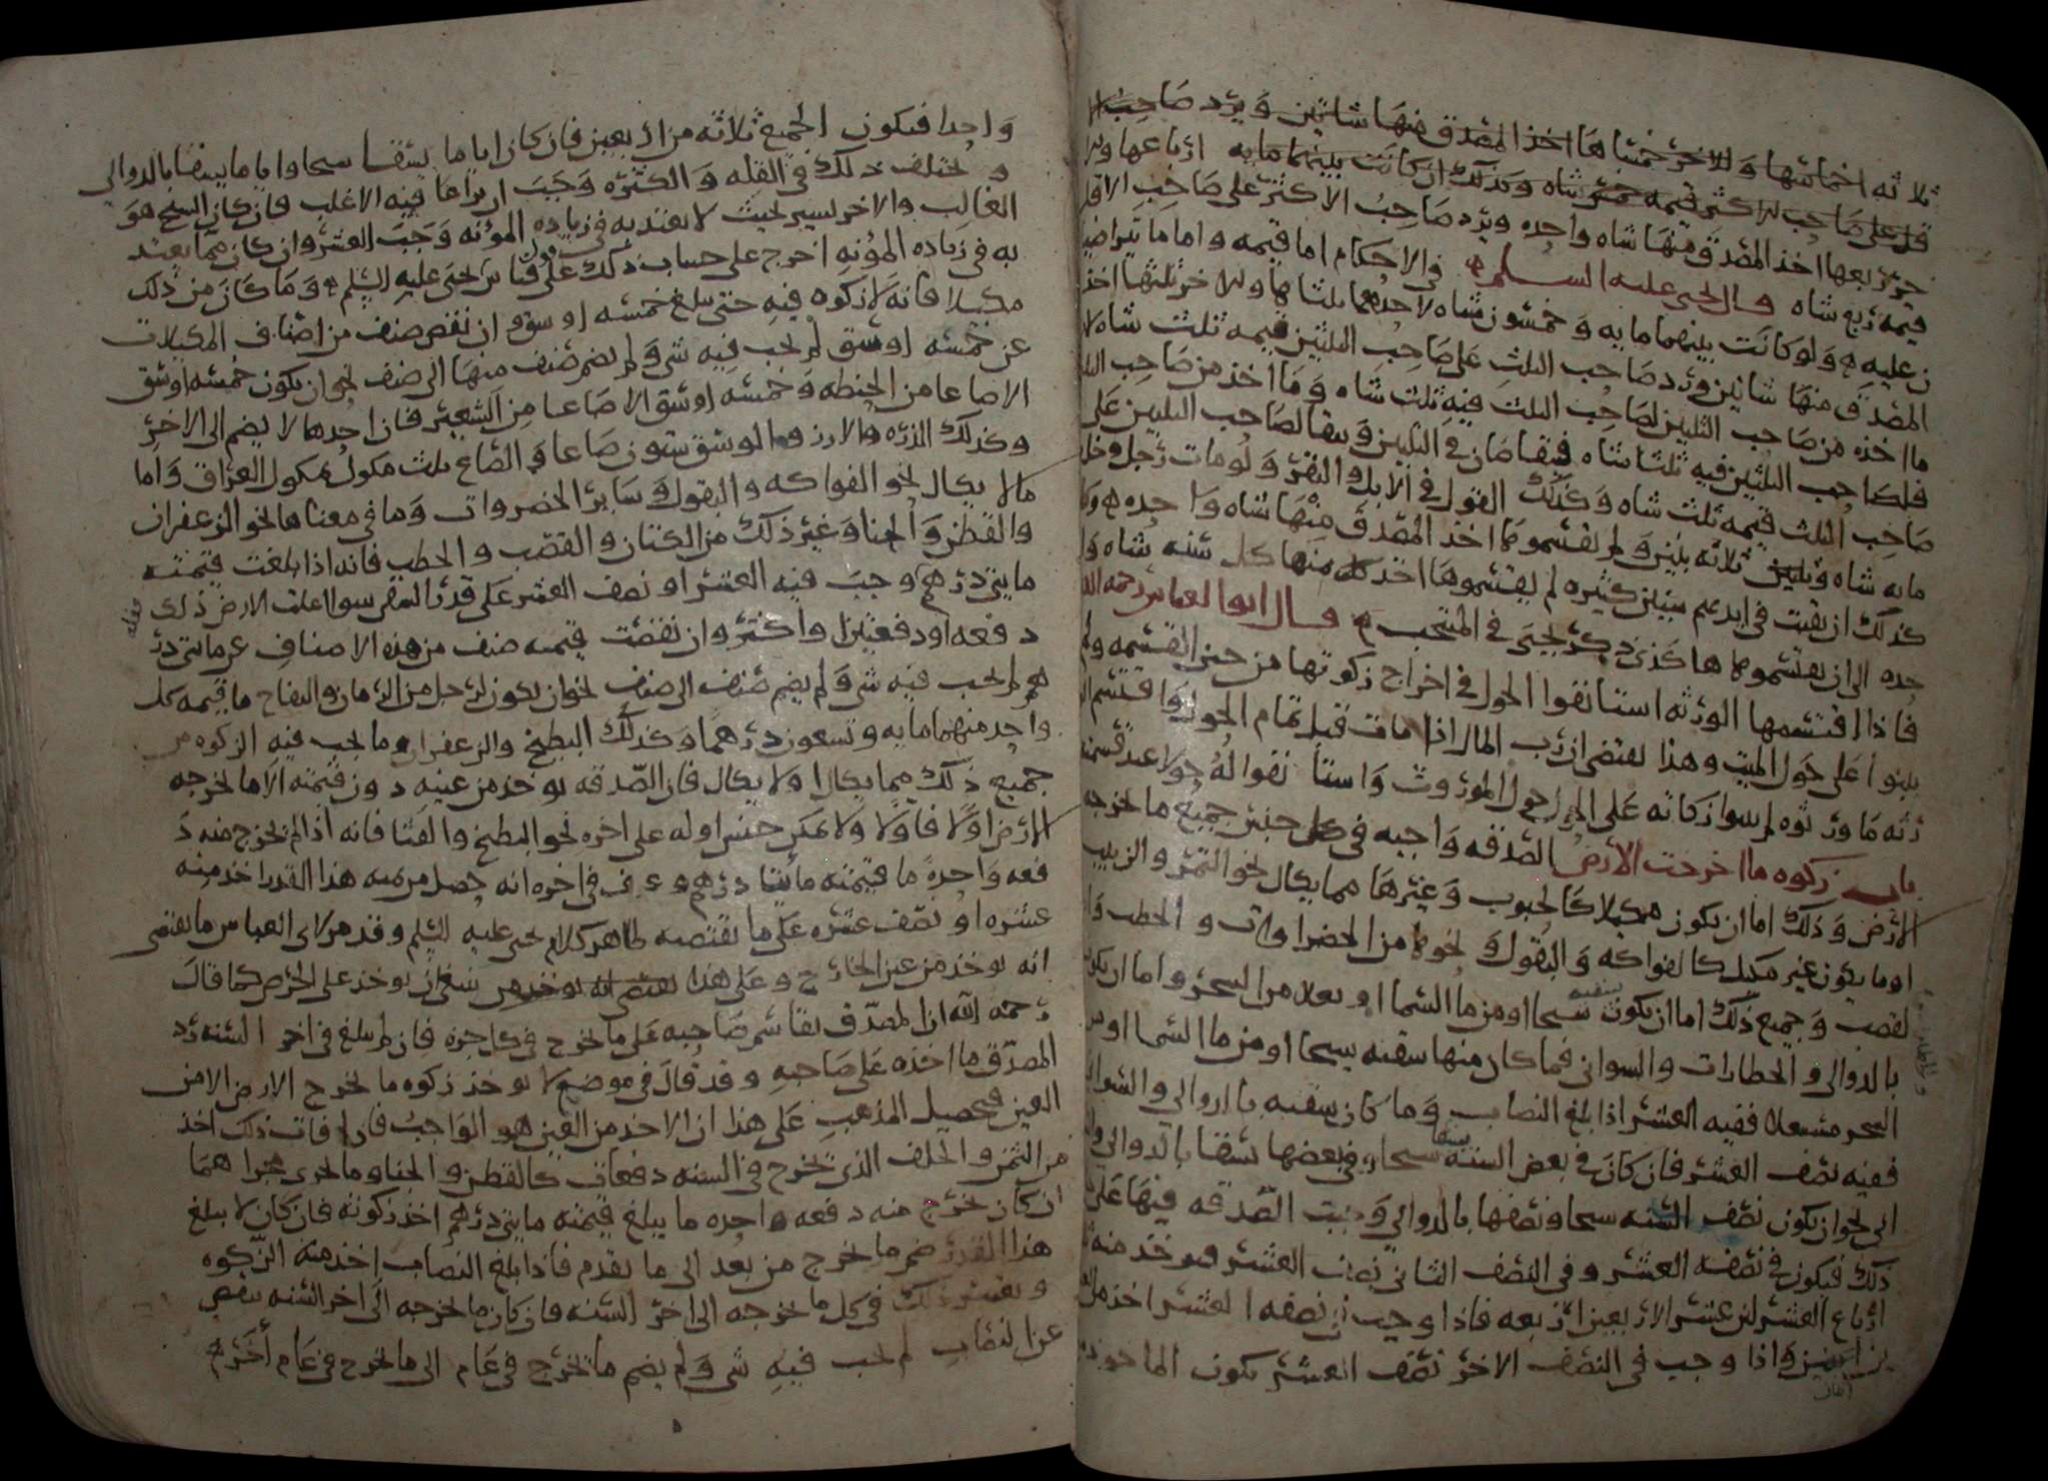 ثلاثه اخماسها وللاخر خمساها اخذ المصدق منها شاتين ويرد صاحب
قل على صاحب الاكثر قيمه خمس شاه وكذلك ان كانت بينهما مايه ارباعها
خر ربعها اخذ المصدق منها شاه واحده ويرد صاحب الاكثر على صاحب الاقل
قيمه ربع شاه قال يحيى عليه السلم في الاحكام اما قيمه واما ما تراضيا
ن عليه ولو كانت بينهما مايه وخمسون شاه لاحدهما ثلثاها وللاخر ثلثها اخذ
المصدق منها شاتين ورد صاحب الثلث على صاحب الثلثين قيمه ثلث شاه
ما اخذه من صاحب الثلثين لصاحب الثلث فيه ثلث شاه وما اخذ من صاحب الثلث
فلصاحب الثلثين فيه ثلثا شاه فيتقاصان في الثلثين ويبقا لصاحب الثلثين على
صاحب الثلث قيمه ثلث شاه وكذلك القول في الابل والبقر ولو مات رجل وخلف
مايه شاه وثلاثه بنين ولم يقتسموها اخذ المصدق منها شاه واحده
كذلك ان بقيت في ايديهم سنين كثيره لم يقتسموها اخذ منها كل سنه شاه وا
حده الى ان يقتسموها هكذى ذكر يحيى في المنتخب قال ابو العباس رحمه الله
فاذا اقتسمها الورثه استانفوا الحول في اخراج زكوتها من حين القسمه ولم
يبنوا على حول الميت وهذا يقتضى ان رب المال اذا مات قبل تمام الحول واقتسم
رثته ما ورثوه لم يبنوا زكاته على الحول حول الموروث واستانفوا له حولا عند قسمته
باب زكوه ما اخرجت الارض الصدقه واجبه في كل جنس جميع ما تخرجه
الارض وذلك اما ان يكون مكيلا كالحبوب وغيرها مما يكال نحو التمر والزبيب
او ما يكون غير مكيل كالفواكه والبقول ونحوها من الخضراوات والحطب وا
لقصب وجميع ذلك اما ان يكون سقيه سيحا او من ما السما او بعلا من البحر واما ان يكون
بالدوالى والخطارات والسوانى فما كان منها سقيه سيحا او من ما السما او من
البحر ففيه العشر اذا بلغ النصاب وما كان سقيه بالدوالي والسوانى
ففيه نصف العشر فان كان في بعض السنه سقيا سيحا وفى بعضها يسقا بالدوالي
الى نحو ان يكون نصف السنه سيحا ونصفها بالدوالي وجبت الصدقه فيها على
ذلك فيكون في نصفه العشر وفى النصف الثانى نصف العشر فيوخذ منه ثلاثه
ارباع العشر لان عشر الاربعين اربعه فاذا وجب في نصفه العشر اخذ من
اثنين واذا وجب فى النصف الاخر نصف العشر يكون الماخوذ
واحدا فيكون الجميع ثلاثه من اربعين فان كان اياما يسقا سيحا واياما يسقا بالدوالي
و تختلف ذلك في القله والكثره وجب ان يراعا فيه الاغلب فان كان السيح هو
الغالب والاخر يسير بحيث لا يعتد به في زياده المؤنه وجب العشر وان كان مما يعتد
به في زياده المؤنه اخرج على حساب ذلك على قياس قول يحيى عليه السلم وما كان من ذلك
مكيلا فانه لا زكوه فيه حتى يبلغ خمسه اوسق وان نقص صنف من اصناف المكيلات
عن خمسه اوسق لم يجب فيه شى ولم يضم صنف منها الى صنف نحو ان يكون خمسه اوسق
الا صاعا من الحنطه وخمسه اوسق الا صاعا من الشعير فان احدهما لا يضم الى الاخر
وكذلك الذره والارز والوسق ستون صاعا والصاع ثلث مكوك بمكوك العراق واما
مالا يكال نحو الفواكه والبقول وساير الخضروات وما في معناها نحو الزعفران
والقطن والحنا وغير ذلك من الكتان والقصب والحطب فانه اذا بلغت قيمته
مايتى درهم وجب فيه العشر او نصف العشر على قدر السقى سوا اغلت الارض ذلك
دفعه او دفعتين او اكثر وان نقصت قيمه صنف من هذه الاصناف عن مايتى در
هم لم يجب فيه شى ولم يضم صنف الى صنف نحو ان يكون لرجل من الرمان والتفاح ما قيمه كل
واحد منهما مايه وتسعون درهما وكذلك البطيخ والزعفران وما يجب فيه الزكوه من
جميع ذلك مما يكال او لا يكال فان الصدقه توخذ من عينه دون قيمته الا ما تخرجه
الارض اولا فاولا ولا يمكن حبس اوله على اخره نحو البطيخ والقثا فانه اذا لم تخرج منه د
فعه واحده ما قيمته مايتا درهم وعرف في اخره انه حصل من ثمنه هذا القدر اخذ منه
عشره او نصف عشره على ما يقتضيه ظاهر كلام يحيى عليه السلم وقد مر لابى العباس ما يقتضى
انه يوخذ من عين الخارج وعلى هذا ينبغى ان يوخذ على الخرص كما قال
رحمه الله ان المصدق يقاسم صاحبه على ما تخرج في كل جزه فان لم يبلغ في اخر السنه رد
المصدق ما اخذه على صاحبه وقد قال في موضع لا يوخذ زكوه ما تخرج الارض الا من
العين فتحصيل المذهب على هذا ان الاخذ من العين هو الواجب فان فات ذلك اخذ
من الثمن والخلف الذى يخرج في السنه دفعات كالقطن والحنا وما جرى مجراهما
ان كان يخرج منه دفعه واحده ما يبلغ قيمته مايتى درهم اخذ زكوته فان كان لا يبلغ
هذا القدر ضم ما يخرج من بعد الى ما تقدم فاذا بلغ النصاب اخذ منه الزكوه
ويعتبر ذلك في كل ما تخرجه الى اخر السنه فان كان ما تخرجه الى اخر السنه ينقص
عن النصاب لم يجب فيه شى ولم يضم ما تخرج في عام الى ما تخرج في عام اخر